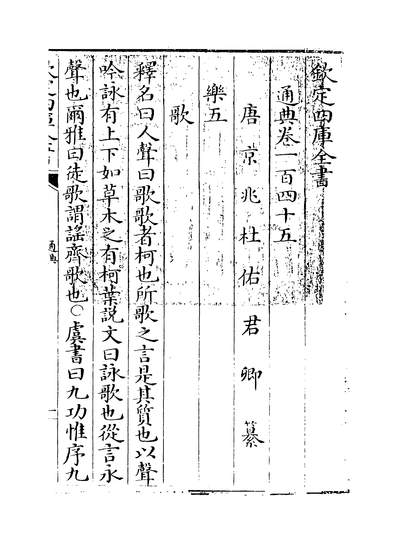 欽定四庫全書
通典卷一百四十五
唐京兆杜佑君卿纂
樂五
歌
釋名曰人聲曰歌歌者柯也所歌之言是其質也以聲
吟詠有上下如草木之有柯葉説文曰詠歌也從言永
聲也爾雅曰徒歌謂謡齊歌也○虞書曰九功惟序九
通典